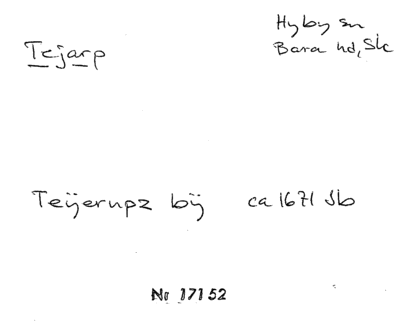 Tejarp
Hyby sn
Bara hd, Sk
Teÿerupz bÿ ca 1671 Jb
Nr 17152